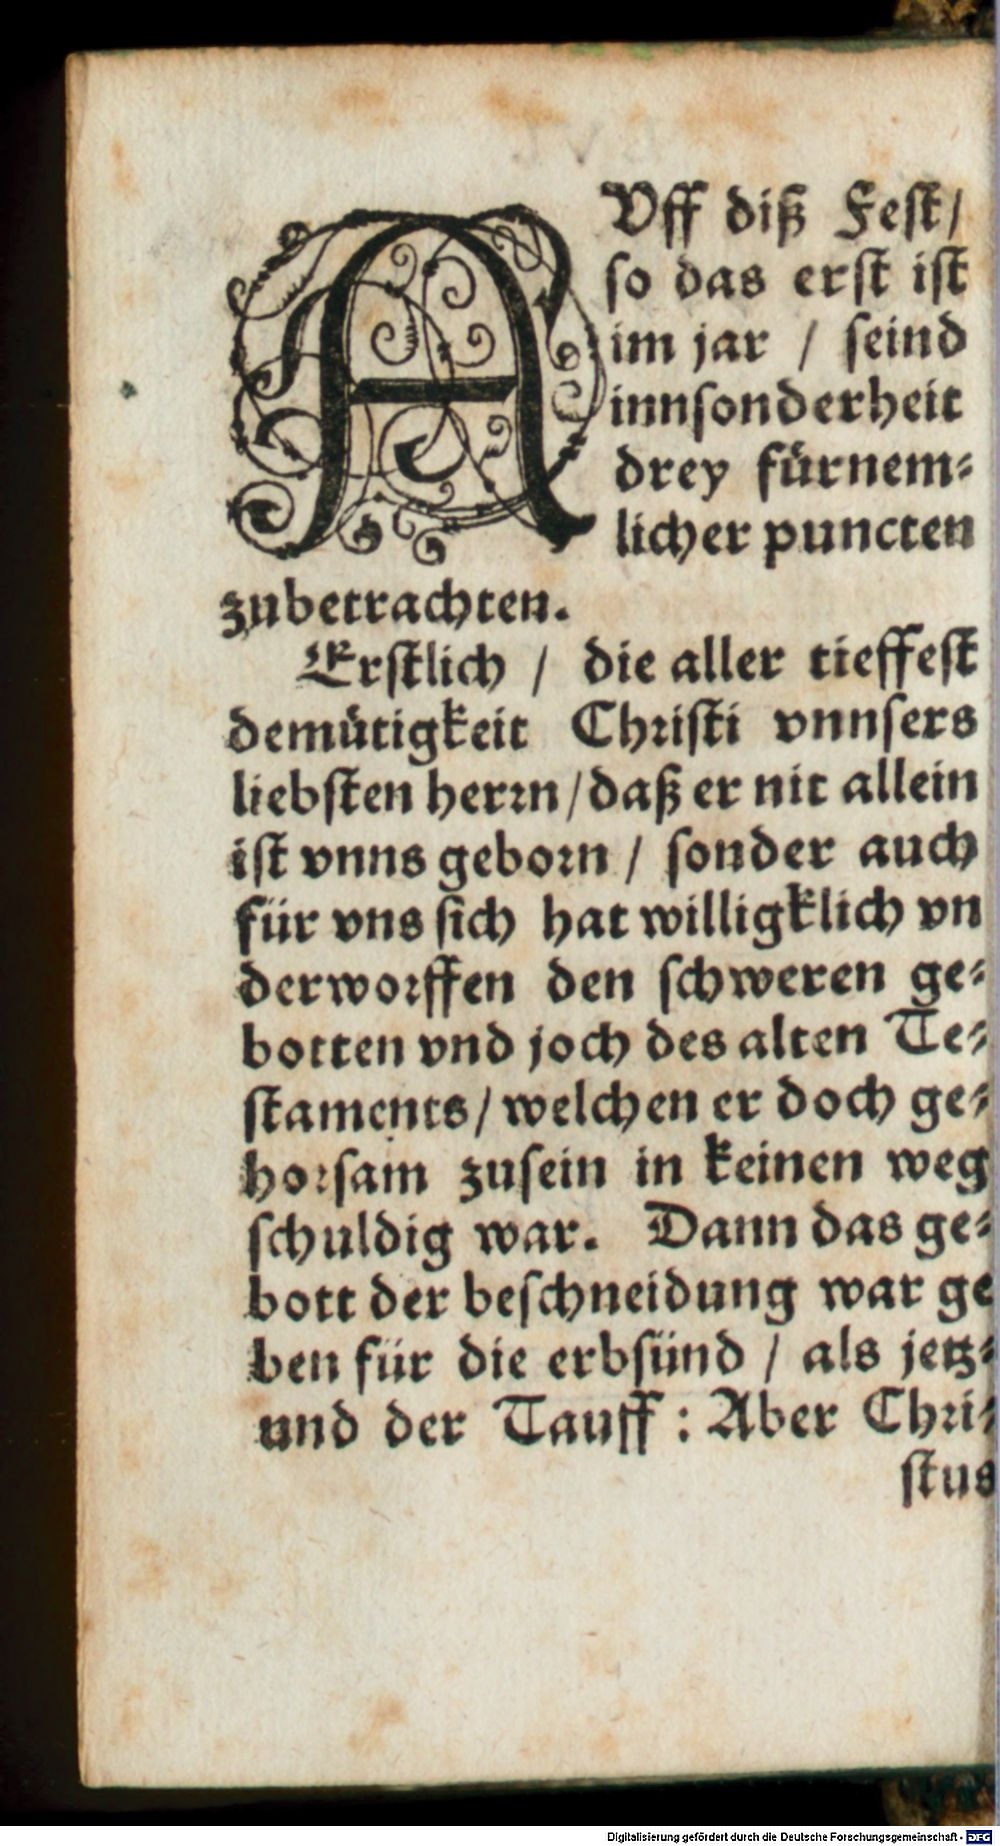 AUff diß Fest/
so das erst ist
im jar / seind
innsonderheit
drey fürnem-
licher puncten
zubetrachten.
Erstlich / die aller tieffest
demütigkeit Christi vnnsers
liebsten herrn/daß er nit allein
ist vnns geborn / sonder auch
für vns sich hat willigklich vn
derworffen den schweren ge-
botten vnd joch des alten Te-
staments/welchen er doch ge-
horsam zusein in keinen weg
schuldig war. Dann das ge-
bott der beschneidung war ge
ben für die erbsünd / als jetz-
und der Tauff : Aber Chri-
stus
Digitalisierung gefördert durch die Deutsche Forschungsgemeinschaft - DFG